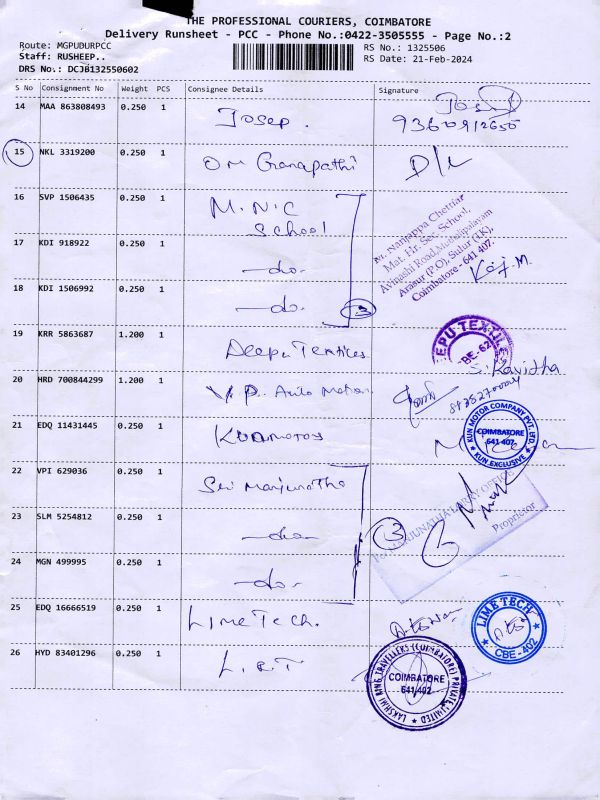 THE PROFESSIONAL COURIERS, COIMBATORE
Delivery Runsheet - PCC - Phone No.:0422-3505555 - Page No.:2
Route: MGPUDURPCC
RS No.: 1325506
Staff: RUSHEEP..
RS Date: 21-Feb-2024
DRS No.: DCJB132550602
S No Consignment No Weight PCS Consignee Details Signature
14 MAA 863808493 0.250 1 Josep.
15 NKL 3319200 0.250 1 Om Ganapathi D/L
16 SVP 1506435 0.250 1 M.N.C
School
Nanjappa Chettiar
Mat. Hr. Sec. School,
Avinashi Road,
Arasur (P.O), Sulur (T.K),
Coimbatore - 641 407.
17 KDI 918922 0.250 1 -do-
18 KDI 1506992 0.250 1 -do- 3
19 KRR 5863687 1.200 1 Deepu Textiles
EEPU TEXTILE
BE-62
S. Kavitha
20 HRD 700844299 1.200 1 V.P. Auto Motion
21 EDQ 11431445 0.250 1 Kunmotors
KUN MOTOR COMPANY PVT. LTD.
COIMBATORE
641 407
KUN EXCLUSIVE
22 VPI 629036 0.250 1 Sri Manjunatha
23 SLM 5254812 0.250 1 -do- 3
MANJUNATHA LORRY OFFICE
Proprietor
24 MGN 499995 0.250 1 -do-
25 EDQ 16666519 0.250 1 Lime Tech.
LIME TECH
CBE - 402
26 HYD 83401296 0.250 1 L.R.T
LAKSHMI RING TRAVELLERS (COIMBATORE) PRIVATE LIMITED
COIMBATORE
641 402